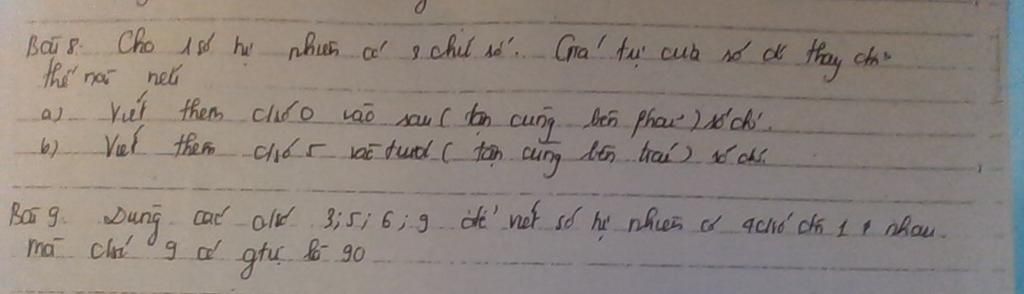 Bài 8. Cho 1 số tự nhiên có 3 chữ số. Giá trị của số đó thay đổi
thế nào nếu
a) Viết thêm chữ số 0 vào sau (tận cùng bên phải) số đó.
b) Viết thêm chữ số 5 vào trước (tận cùng bên trái) số đó.
Bài 9. Dùng các chữ số 3; 5; 6; 9 để viết số tự nhiên có 4 chữ số nhau
mà chữ số 9 có gtrị là 90